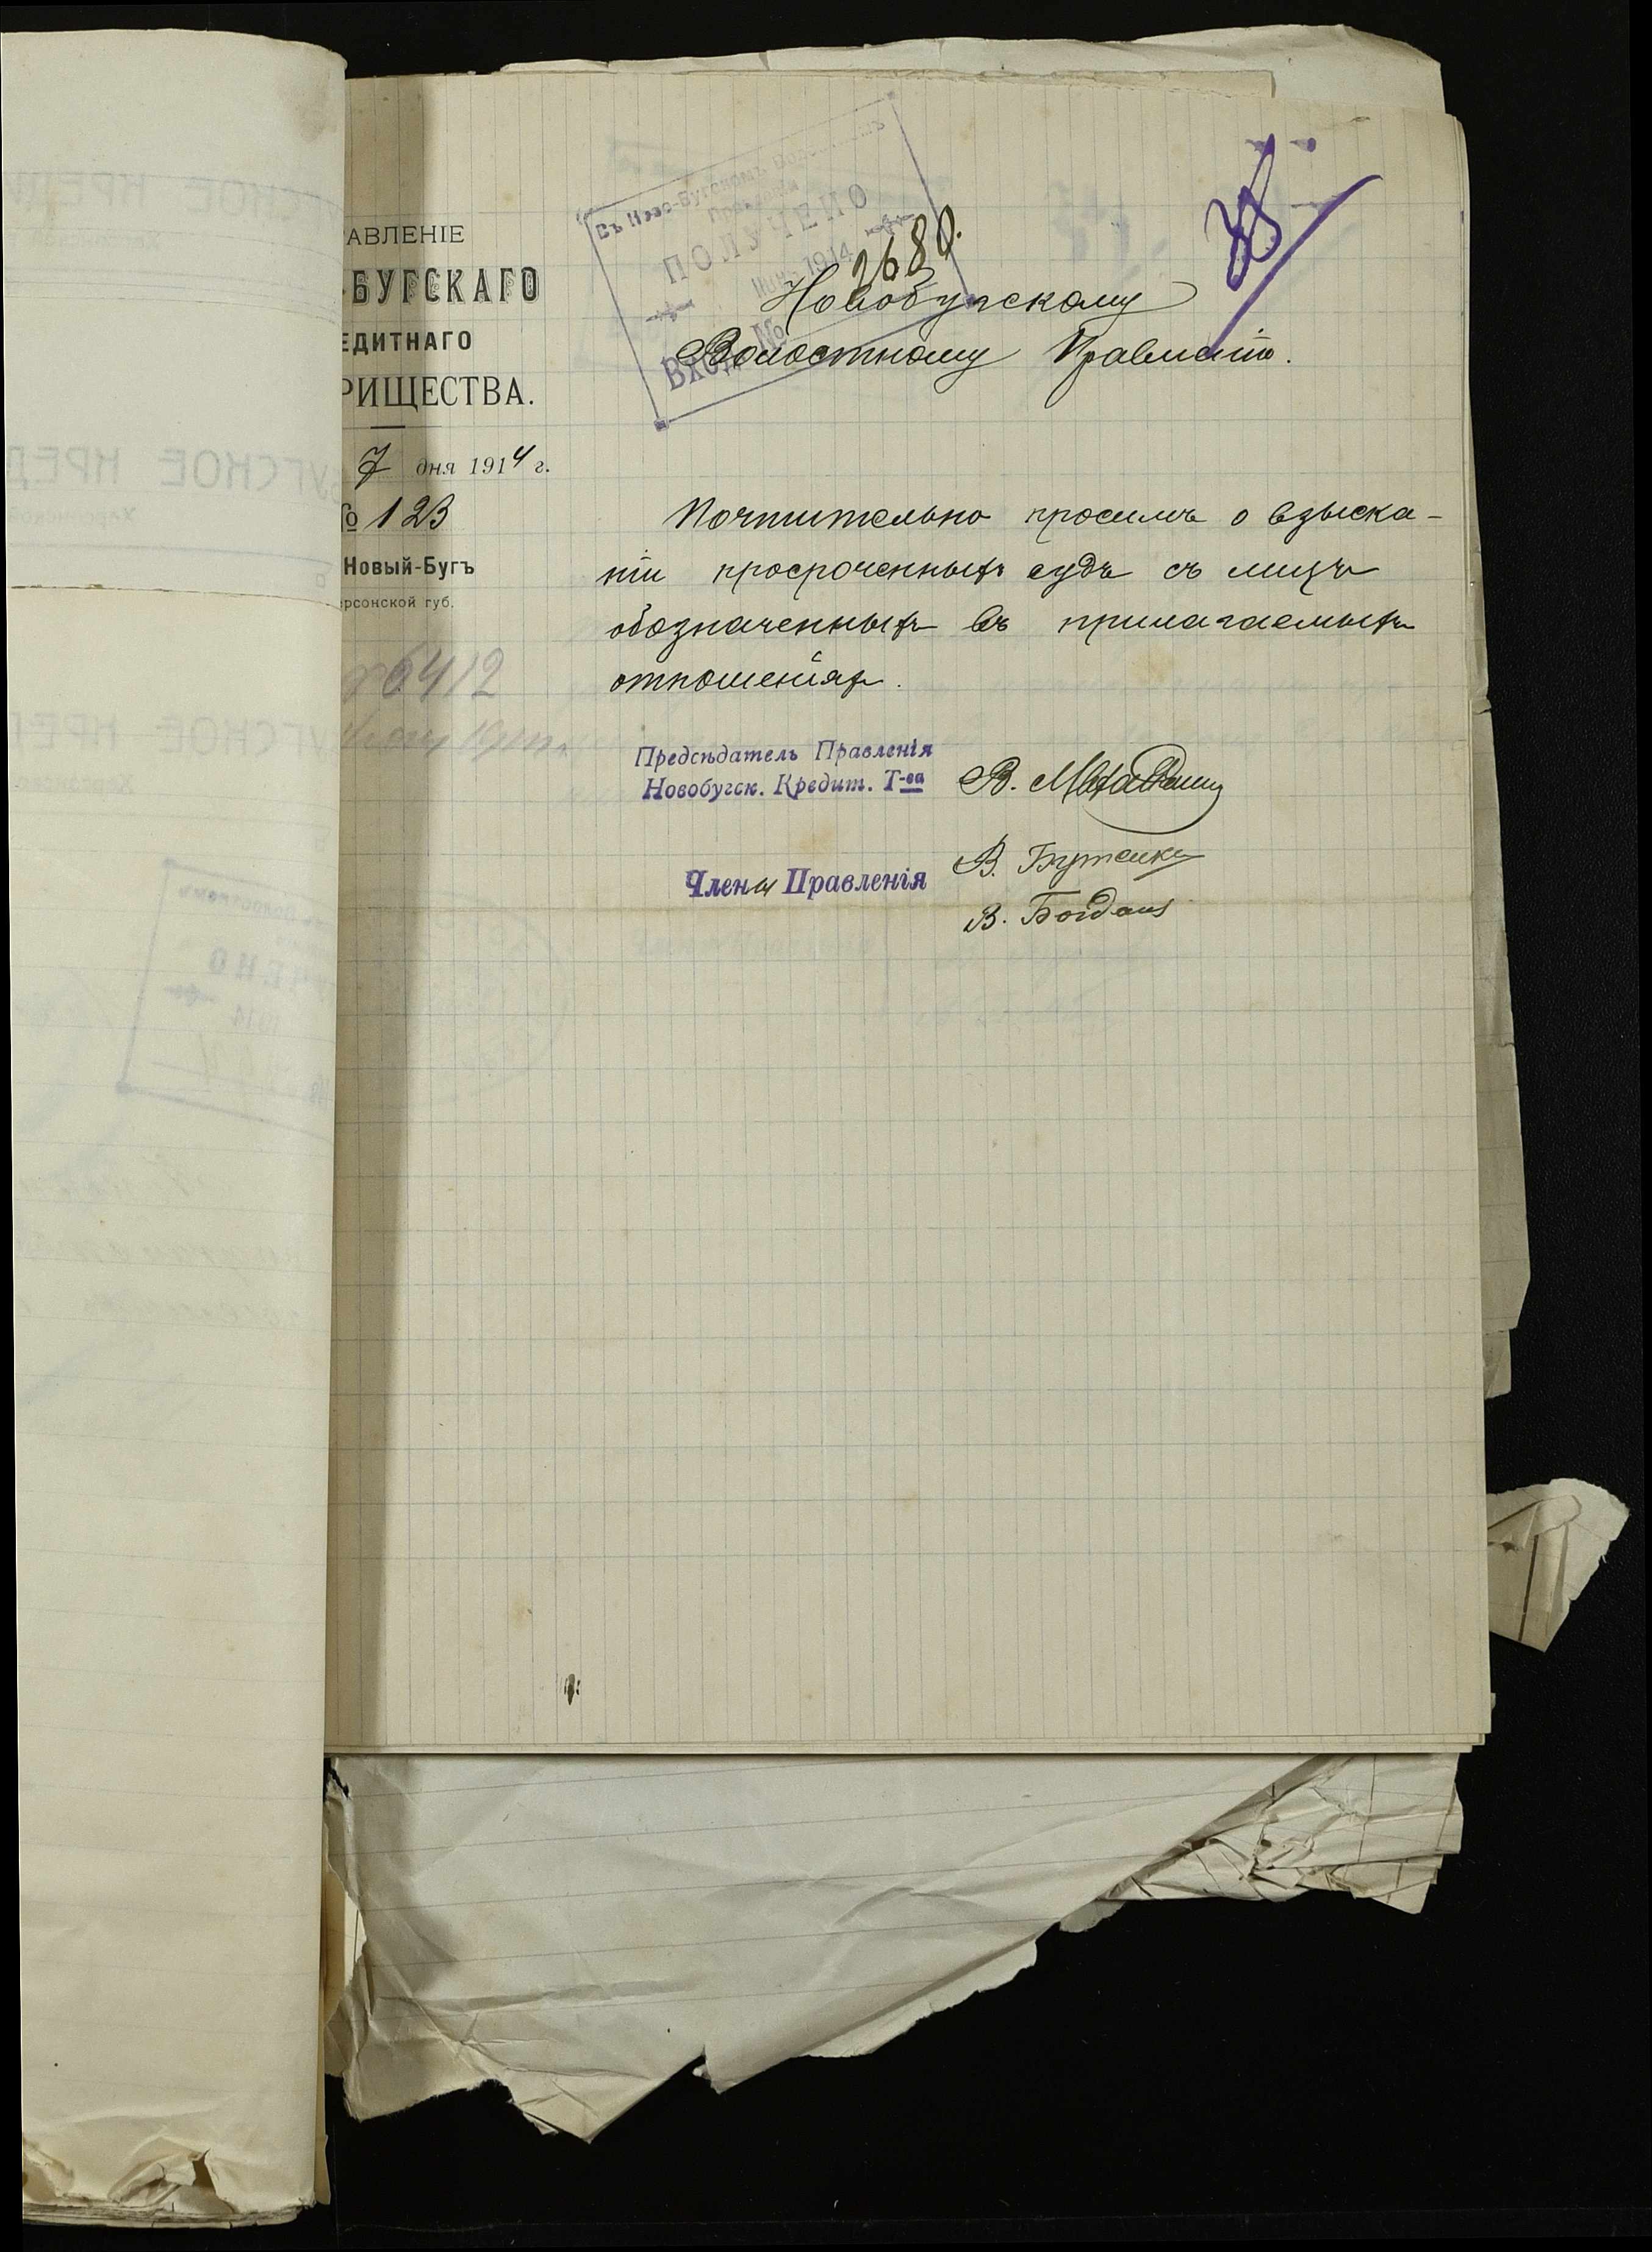 АВЛЕНІЕ
-БУГСКАГО
ЕДИТНАГО
РИЩЕСТВА.
7 дня 1914 г.
№ 123
Новый-Бугъ
ерсонской губ.
6412
Въ Ново-Бугскомъ
ПОЛУЧЕНО
1914
Вход. №
2680.
38
Новобугскому
Волостному Правленію.
Почтительно просимъ о взыска-
ніи просроченныхъ судъ съ лицъ
обозначенныхъ въ прилагаемыхъ
отношеніяхъ.
Предсѣдатель Правленія
Новобугск. Кредит. Т-ва
В.
Члены Правленія
В. Бутенко
В. Богданъ